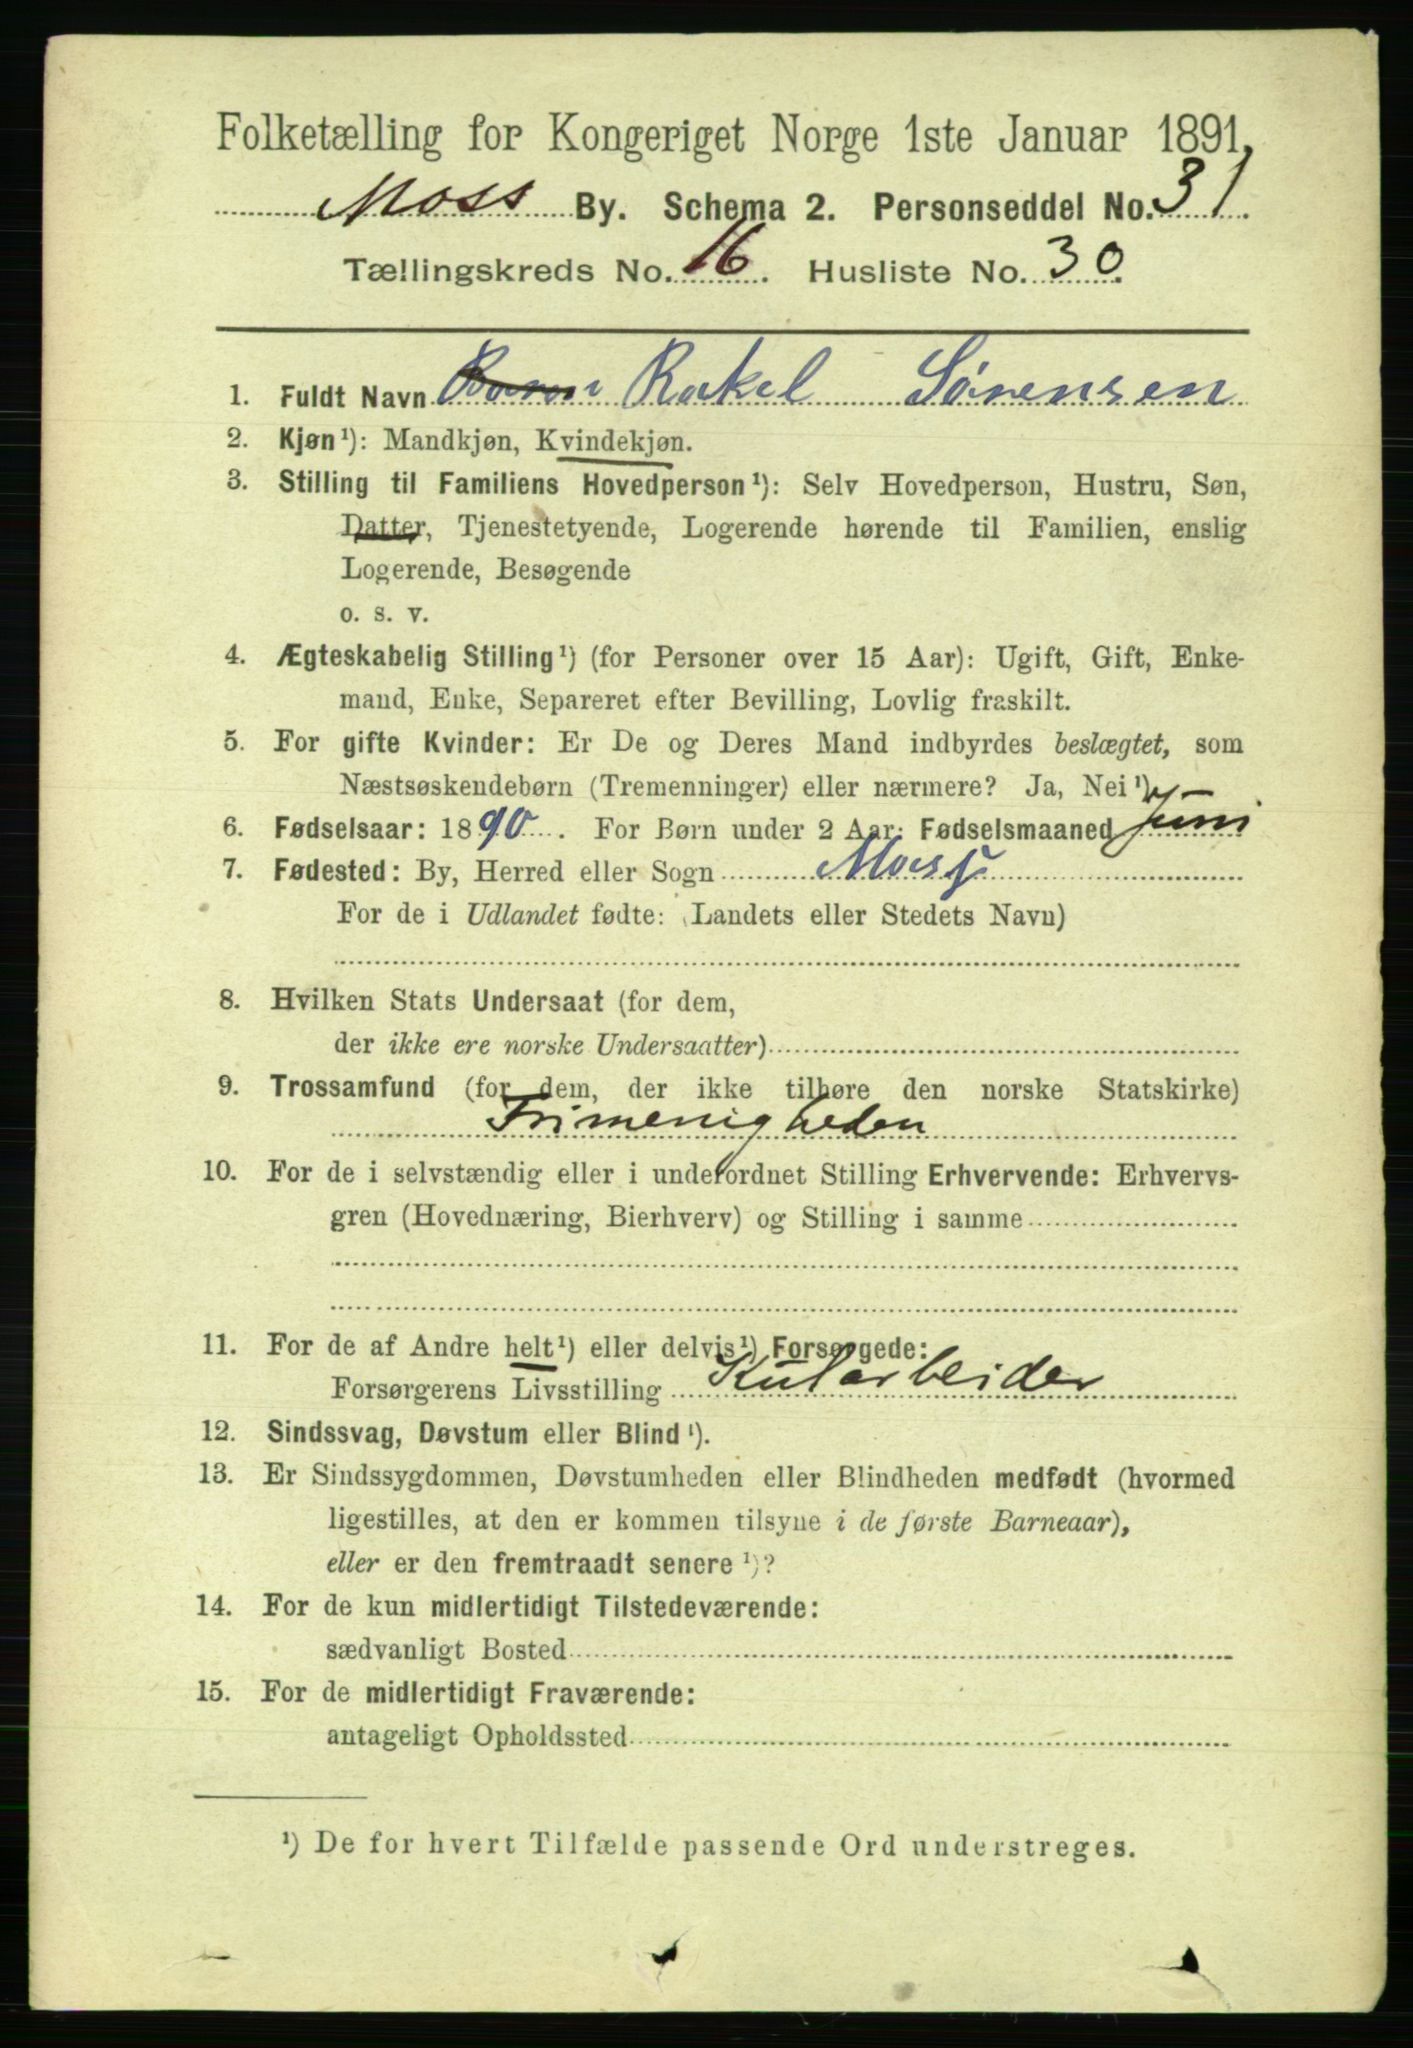 Folketælling for Kongeriget Norge 1ste Januar 1891.
Moss By. Schema 2. Personseddel No. 31
Tællingskreds No. 16. Husliste No. 30.
1. Fuldt Navn Rakel Sørensen
2. Kjøn¹): Mandkjøn, Kvindekjøn.
3. Stilling til Familiens Hovedperson¹): Selv Hovedperson, Hustru, Søn,
Datter, Tjenestetyende, Logerende hørende til Familien, enslig
Logerende, Besøgende
o. s. v.
4. Ægteskabelig Stilling¹) (for Personer over 15 Aar): Ugift, Gift, Enke-
mand, Enke, Separeret efter Bevilling, Lovlig fraskilt.
5. For gifte Kvinder: Er De og Deres Mand indbyrdes beslægtet, som
Næstsøskendebørn (Tremenninger) eller nærmere? Ja, Nei¹).
6. Fødselsaar: 1890. For Børn under 2 Aar: Fødselsmaaned Juni
7. Fødested: By, Herred eller Sogn Moss
For de i Udlandet fødte: (Landets eller Stedets Navn)
8. Hvilken Stats Undersaat (for dem,
der ikke ere norske Undersaatter)
9. Trossamfund (for dem, der ikke tilhøre den norske Statskirke)
Frimenigheden
10. For de i selvstændig eller i underordnet Stilling Erhvervende: Erhvervs-
gren (Hovednæring, Bierhverv) og Stilling i samme
11. For de af Andre helt¹) eller delvis¹) Forsørgede:
Forsørgerens Livsstilling Kularbeider
12. Sindssvag, Døvstum eller Blind¹).
13. Er Sindssygdommen, Døvstumheden eller Blindheden medfødt (hvormed
ligestilles, at den er kommen tilsyne i de første Barneaar),
eller er den fremtraadt senere¹)?
14. For de kun midlertidigt Tilstedeværende:
sædvanligt Bosted
15. For de midlertidigt Fraværende:
antageligt Opholdssted
¹) De for hvert Tilfælde passende Ord understreges.